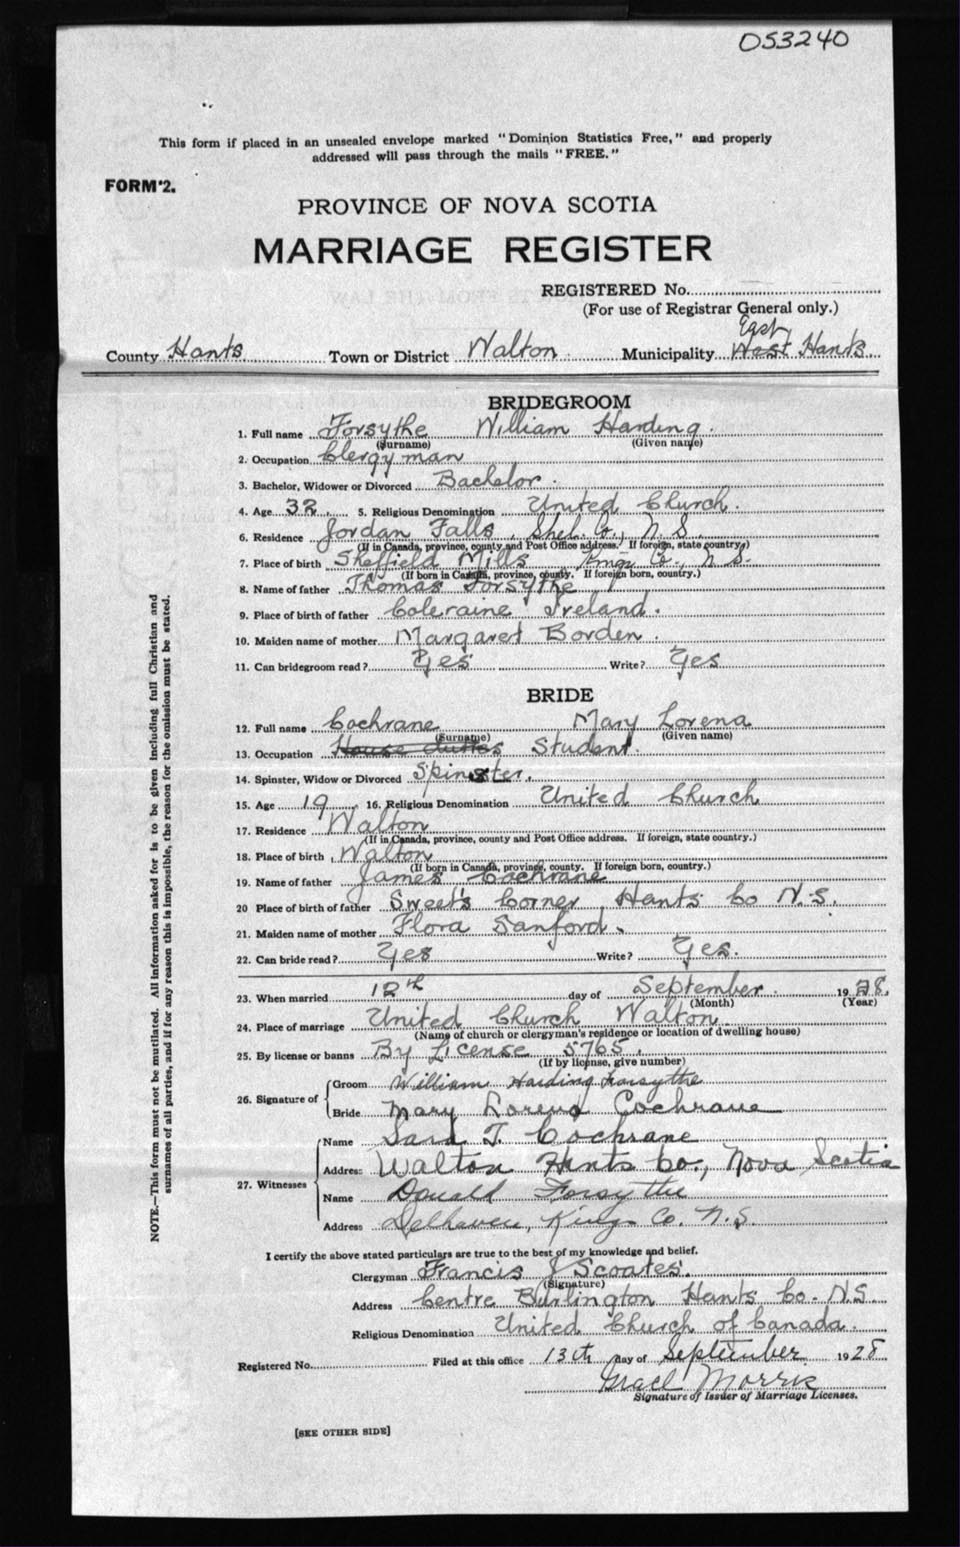 053240
This form if placed in an unsealed envelope marked "Dominion Statistics Free," and properly
addressed will pass through the mails "FREE."
FORM 2.
PROVINCE OF NOVA SCOTIA
MARRIAGE REGISTER
REGISTERED No.
(For use of Registrar General only.)
East
County Hants Town or District Walton Municipality West Hants
BRIDEGROOM
1. Full name Forsythe William Harding.
(Surname) (Given name)
2. Occupation Clergyman
3. Bachelor, Widower or Divorced Bachelor.
4. Age 32 5. Religious Denomination United Church.
6. Residence Jordan Falls, Shel. Co., N.S.
(If in Canada, province, county and Post Office address. If foreign, state country.)
7. Place of birth Sheffield Mills Kings Co., N.S.
(If born in Canada, province, county. If foreign born, country.)
8. Name of father Thomas Forsythe
9. Place of birth of father Coleraine Ireland.
10. Maiden name of mother Margaret Borden.
11. Can bridegroom read? Yes Write? Yes
BRIDE
12. Full name Cochrane Mary Lorena
(Surname) (Given name)
13. Occupation House duties Student.
14. Spinster, Widow or Divorced Spinster.
15. Age 19 16. Religious Denomination United Church
17. Residence Walton
(If in Canada, province, county and Post Office address. If foreign, state country.)
18. Place of birth Walton
(If born in Canada, province, county. If foreign born, country.)
19. Name of father James Cochrane
20 Place of birth of father Sweet's Corner, Hants Co N.S.
21. Maiden name of mother Flora Sanford.
22. Can bride read? Yes Write? Yes.
23. When married 12th day of September 1928.
(Month) (Year)
24. Place of marriage United Church Walton
(Name of church or clergyman's residence or location of dwelling house)
25. By license or banns By License 5765.
(If by license, give number)
26. Signature of Groom William Harding Forsythe
Bride Mary Lorena Cochrane
27. Witnesses Name T. Cochrane
Address Walton Hants Co., Nova Scotia
Name Donald Forsythe
Address Delhaven, Kings Co. N.S.
I certify the above stated particulars are true to the best of my knowledge and belief.
Clergyman Francis J Scoates.
(Signature)
Address Centre Burlington Hants Co. N.S.
Religious Denomination United Church of Canada.
Registered No. Filed at this office 13th day of September 1928
Grace Morris
Signature of Issuer of Marriage Licenses.
[SEE OTHER SIDE]
NOTE.—This form must not be mutilated. All information asked for is to be given including full Christian and
surnames of all parties, and if for any reason this is impossible, the reason for the omission must be stated.